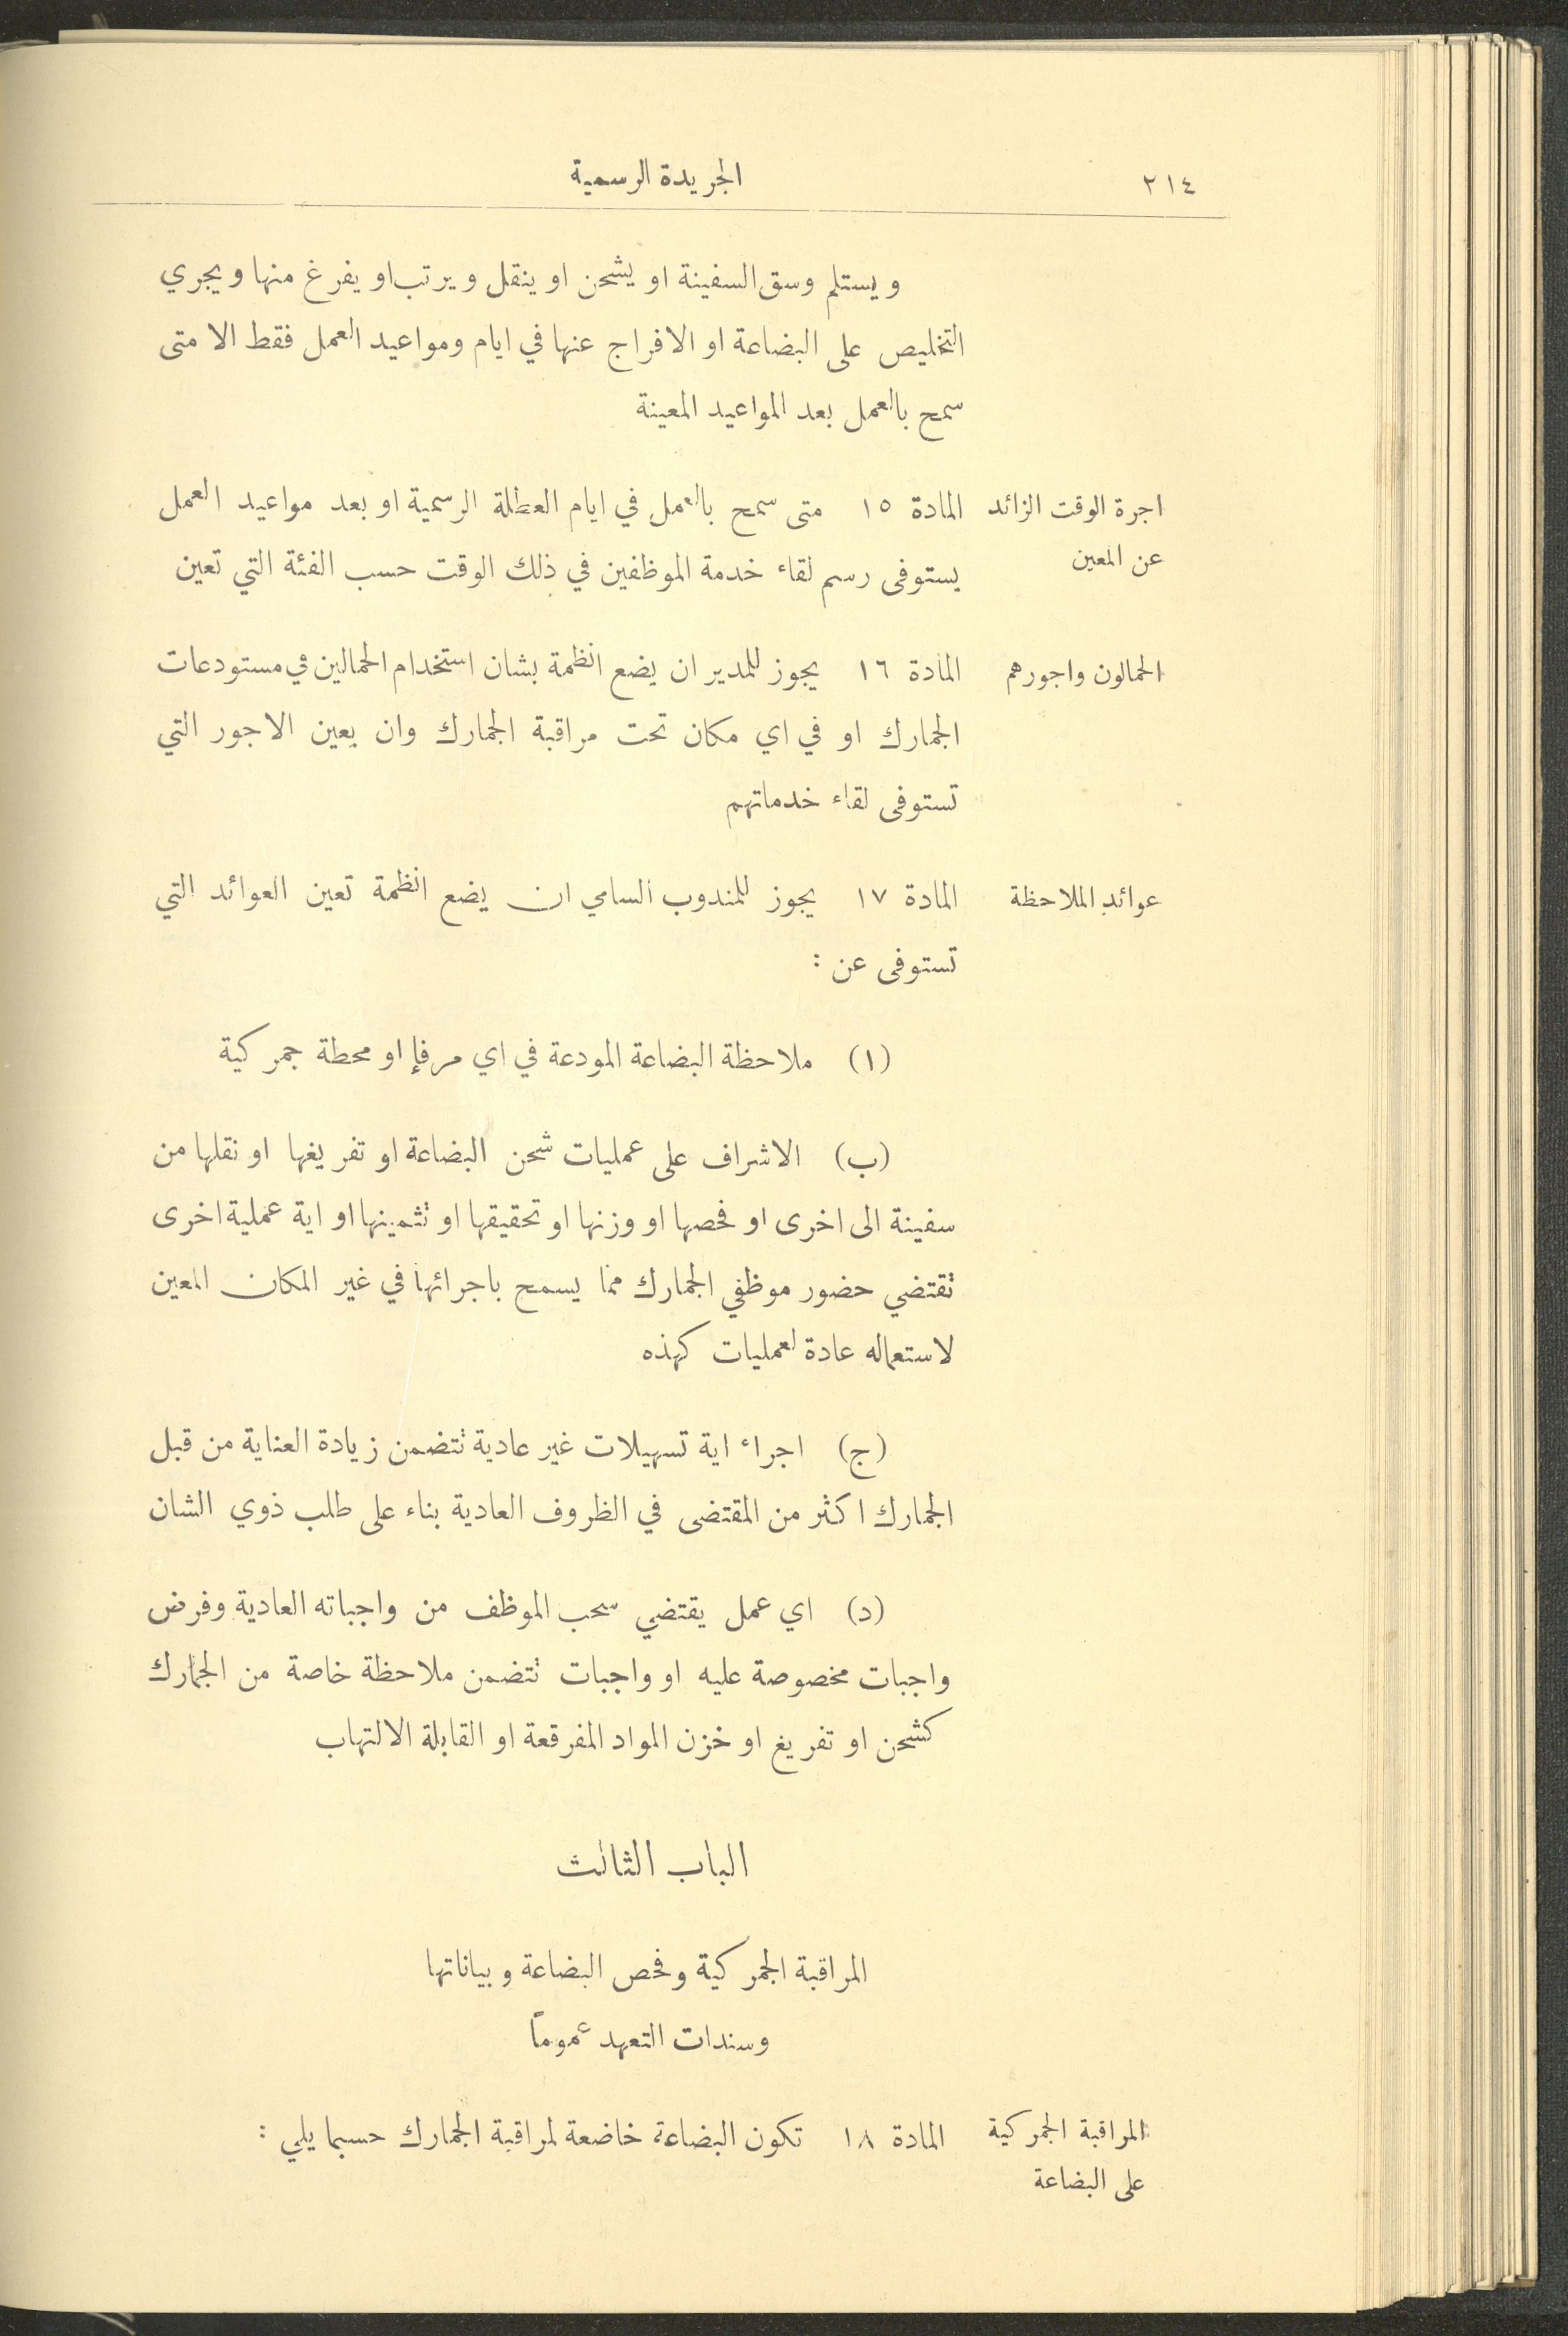 ٢١٤
الجريدة الرسمية
ويستلم وسق السفينة او يشحن او ينقل ويرتب او يفرغ منها ويجري
التخليص على البضاعة او الافراج عنها في ايام ومواعيد العمل فقط الا متى
سمح بالعمل بعد المواعيد المعينة
اجرة الوقت الزائد
عن المعين
المادة ١٥ متى سمح بالعمل في ايام العطلة الرسمية او بعد مواعيد العمل
يستوفى رسم لقاء خدمة الموظفين في ذلك الوقت حسب الفئة التي تعين
الحمالون واجورهم
المادة ١٦ يجوز للمدير ان يضع انظمة بشان استخدام الحمالين في مستودعات
الجمارك او في اي مكان تحت مراقبة الجمارك وان يعين الاجور التي
تستوفى لقاء خدماتهم
عوائد الملاحظة
المادة ١٧ يجوز للمندوب السامي ان يضع انظمة تعين العوائد التي
تستوفى عن :
(ا) ملاحظة البضاعة المودعة في اي مرفإ او محطة جمركية
(ب) الاشراف على عمليات شحن البضاعة او تفريغها او نقلها من
سفينة الى اخرى او فحصها او وزنها او تحقيقها او تثمينها او اية عملية اخرى
تقتضي حضور موظفي الجمارك مما يسمح باجرائها في غير المكان المعين
لاستعماله عادة لعمليات كهذه
(ج) اجراء اية تسهيلات غير عادية تتضمن زيادة العناية من قبل
الجمارك اكثر من المقتضى في الظروف العادية بناء على طلب ذوي الشان
(د) اي عمل يقتضي سحب الموظف من واجباته العادية وفرض
واجبات مخصوصة عليه او واجبات تتضمن ملاحظة خاصة من الجمارك
كشحن او تفريغ او خزن المواد المفرقعة او القابلة الالتهاب
الباب الثالث
المراقبة الجمركية وفحص البضاعة وبياناتها
وسندات التعهد عموماً
المراقبة الجمركية
على البضاعة
المادة ١٨ تكون البضاعة خاضعة لمراقبة الجمارك حسبما يلي :